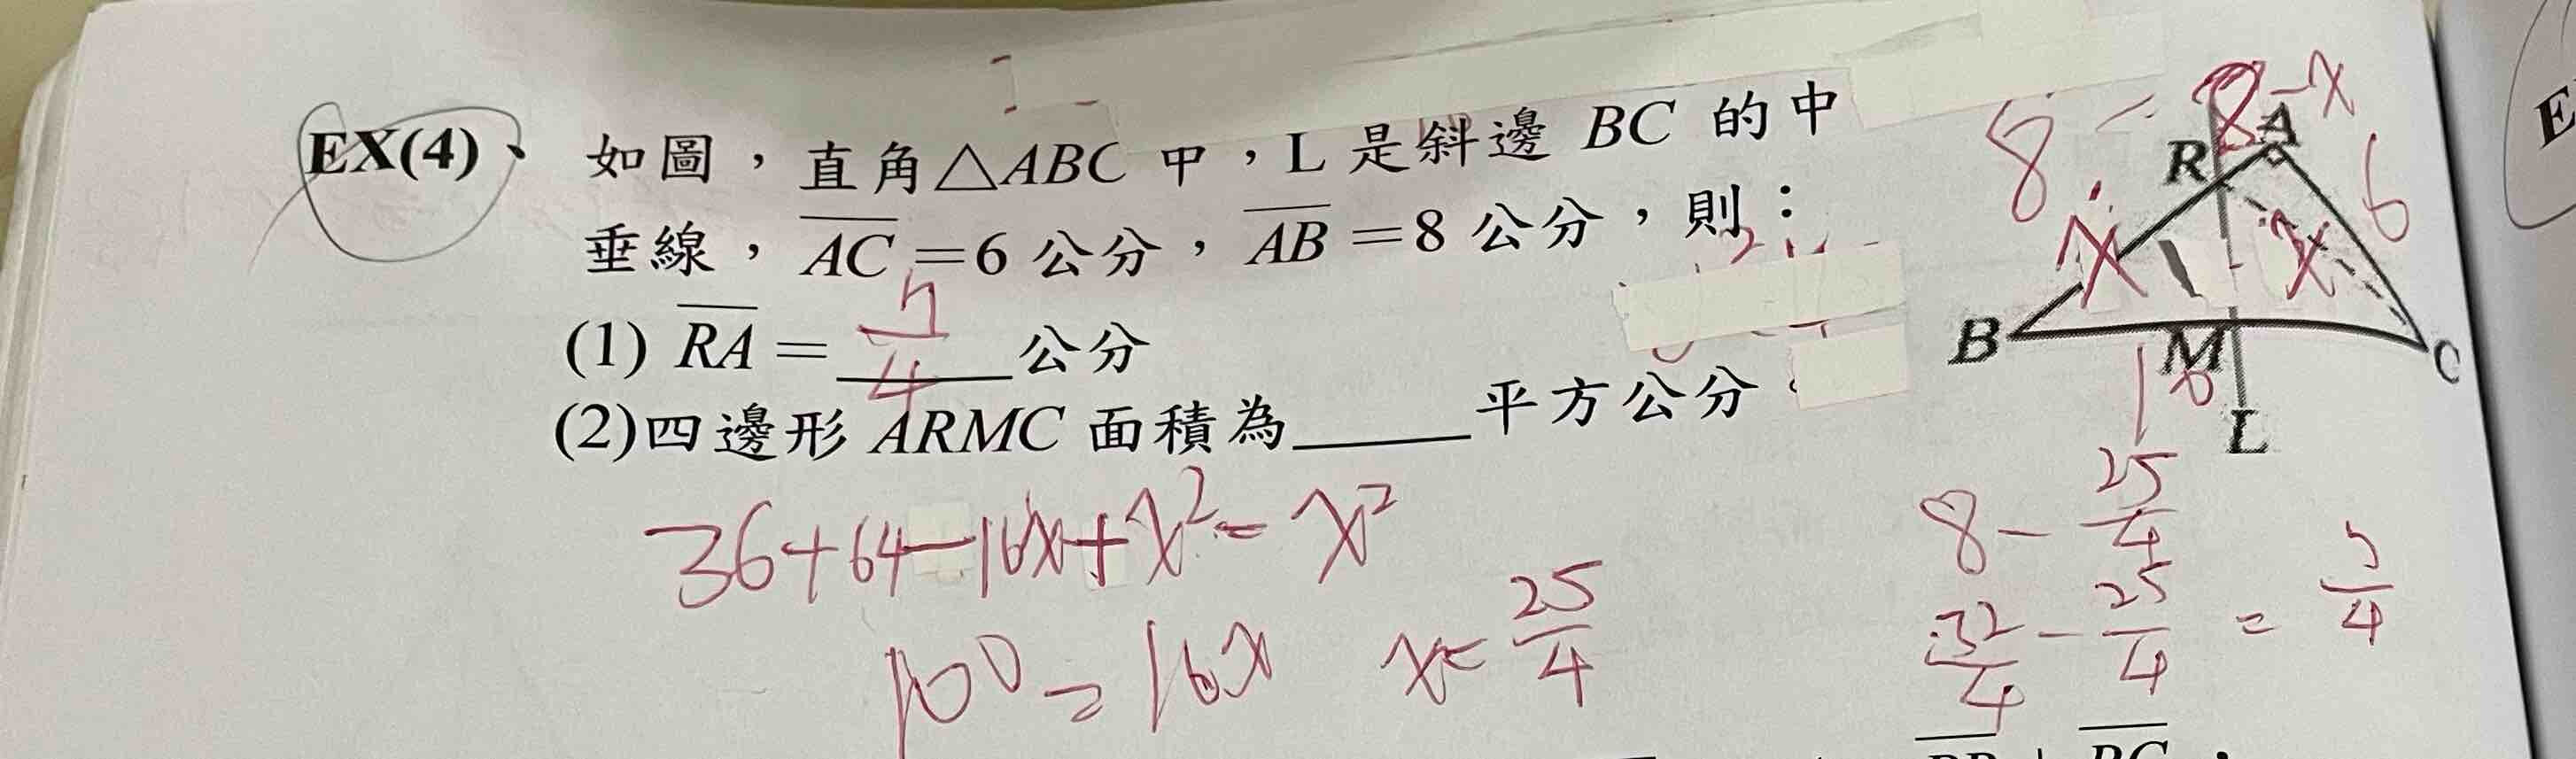 EX(4)、如圖，直角△ABC 中，L 是斜邊 BC 的中
垂線，AC=6 公分，AB=8 公分，則：
(1) RA= 7/4 公分
(2)四邊形 ARMC 面積為____平方公分
8-x
R A
6
x x
B M C
10
L
36+64-16x+x²=x²
100=16x x=25/4
8-25/4
32/4-25/4=7/4
E